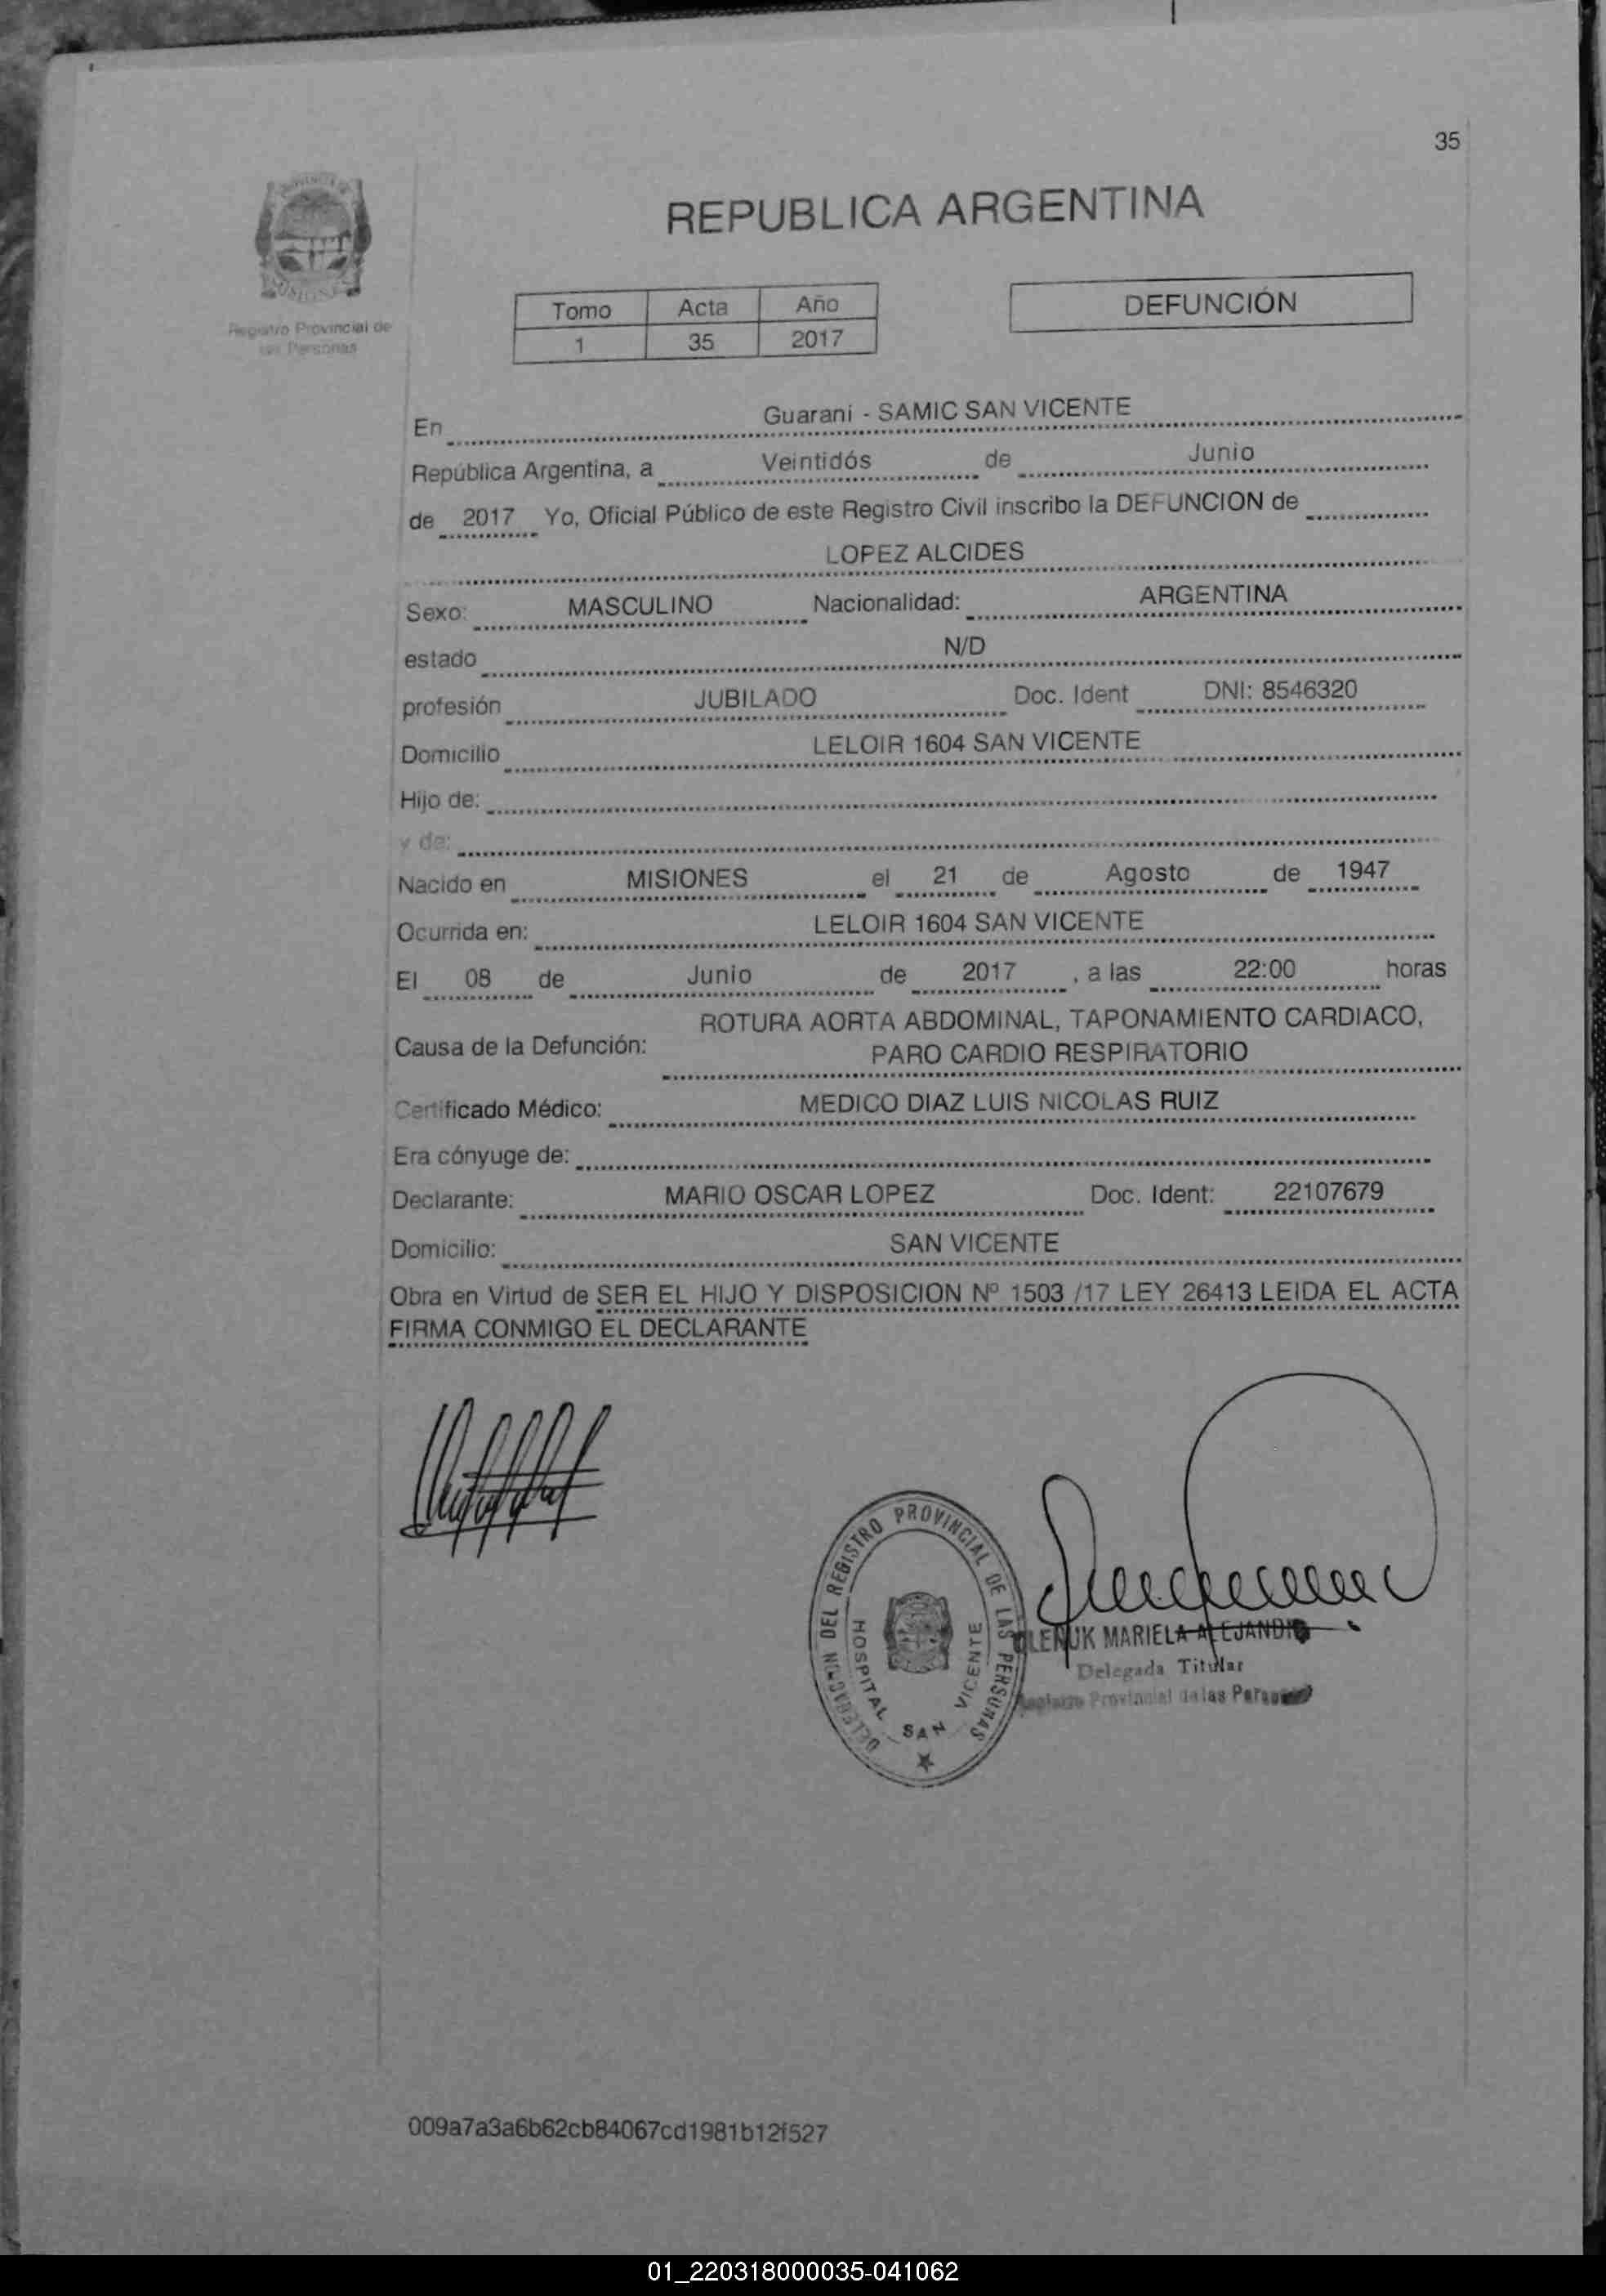 35
REPUBLICA ARGENTINA
Registro Provincial de
las Personas
Tomo Acta Año
1 35 2017
DEFUNCIÓN
En Guarani - SAMIC SAN VICENTE
República Argentina, a Veintidós de Junio
de 2017 Yo, Oficial Público de este Registro Civil inscribo la DEFUNCION de
LOPEZ ALCIDES
Sexo: MASCULINO Nacionalidad: ARGENTINA
estado N/D
profesión JUBILADO Doc. Ident DNI: 8546320
Domicilio LELOIR 1604 SAN VICENTE
Hijo de:
y de:
Nacido en MISIONES el 21 de Agosto de 1947
Ocurrida en: LELOIR 1604 SAN VICENTE
El 08 de Junio de 2017 , a las 22:00 horas
ROTURA AORTA ABDOMINAL, TAPONAMIENTO CARDIACO,
Causa de la Defunción: PARO CARDIO RESPIRATORIO
Certificado Médico: MEDICO DIAZ LUIS NICOLAS RUIZ
Era cónyuge de:
Declarante: MARIO OSCAR LOPEZ Doc. Ident: 22107679
Domicilio: SAN VICENTE
Obra en Virtud de SER EL HIJO Y DISPOSICION Nº 1503 /17 LEY 26413 LEIDA EL ACTA
FIRMA CONMIGO EL DECLARANTE
DELEGACION DEL REGISTRO PROVINCIAL DE LAS PERSONAS
HOSPITAL SAN VICENTE
MARIELA
Delegada Titular
Provincial de las Personas
009a7a3a6b62cb84067cd1981b12f527
01_220318000035-041062